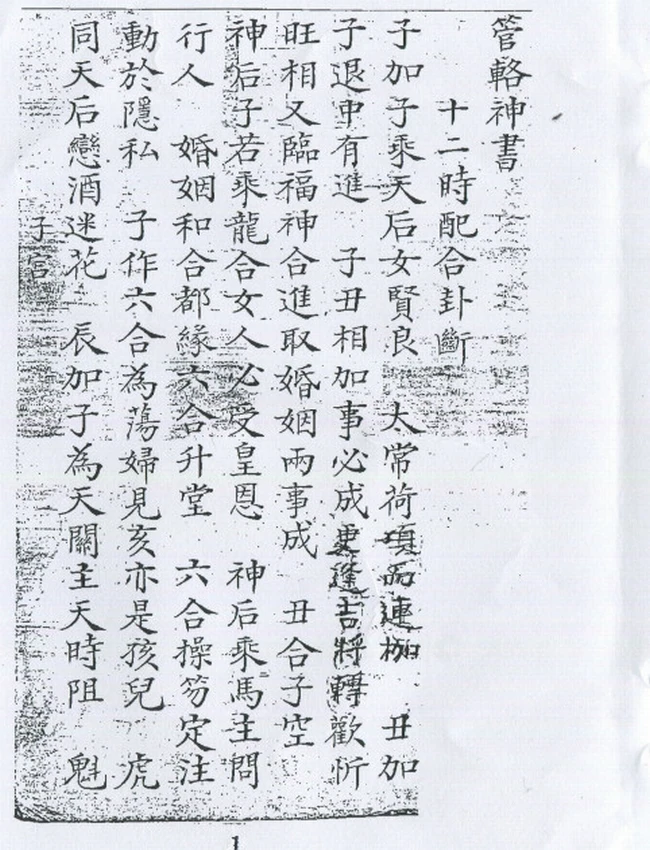 管輅神書
十二時配合卦斷
子加子乘天后女賢良　太常荷項兩連枷　丑加
子退中有進　子丑相加事必成更逢吉將轉歡忻
旺相又臨福神合進取婚姻兩事成　丑合子空
神后子若乘龍合女人必受皇恩　神后乘馬主問
行人　婚姻和合都緣六合升堂　六合操笏定注
動於隱私　子作六合為蕩婦見亥亦是孩兒　虎
同天后戀酒迷花　辰加子為天關主天時阻　魁
子宮
1